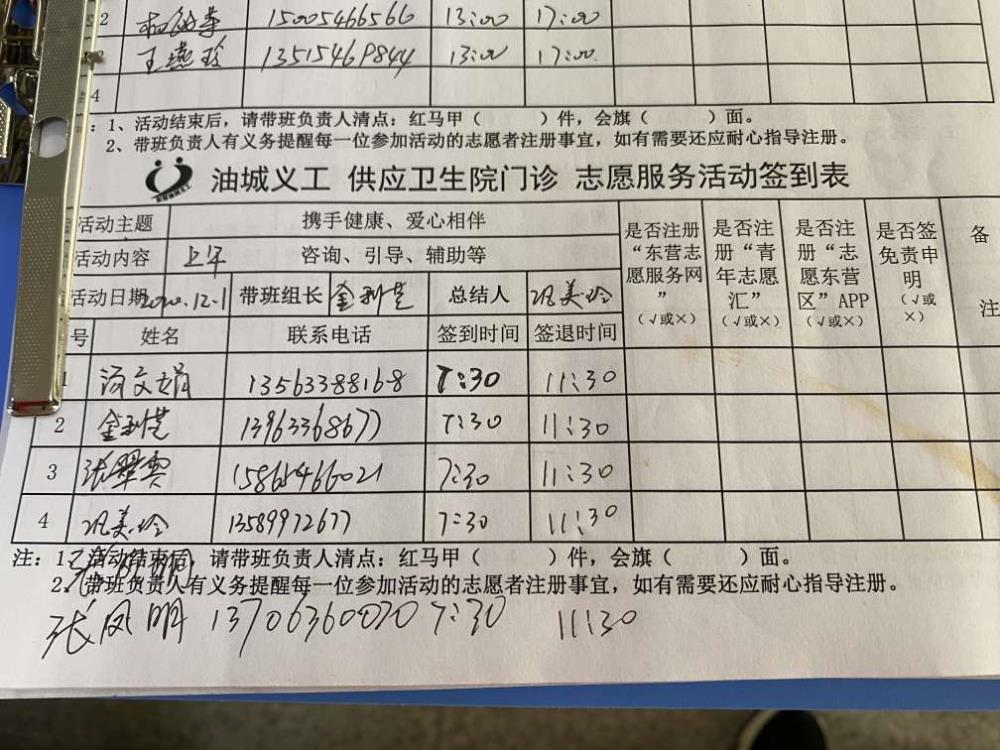 2 15005466566 13:00 17:00
王燕玲 13515469844 13:00 17:00
4
:1、活动结束后，请带班负责人清点：红马甲（ ）件，会旗（ ）面。
2、带班负责人有义务提醒每一位参加活动的志愿者注册事宜，如有需要还应耐心指导注册。
油城义工 供应卫生院门诊 志愿服务活动签到表
活动主题 携手健康、爱心相伴 是否注册“东营志愿服务网”（√或×） 是否注册“青年志愿汇”（√或×） 是否注册“志愿东营区”APP（√或×） 是否签免责申明（√或×） 备注
活动内容 上午 咨询、引导、辅助等
活动日期 2020.12.1 带班组长 金利芝 总结人 巩美玲
号 姓名 联系电话 签到时间 签退时间
1 汤文娟 13563388168 7:30 11:30
2 金利芝 13963368677 7:30 11:30
3 张翠云 15865466021 7:30 11:30
4 巩美玲 13589972677 7:30 11:30
注：1、活动结束后，请带班负责人清点：红马甲（ ）件，会旗（ ）面。
2、带班负责人有义务提醒每一位参加活动的志愿者注册事宜，如有需要还应耐心指导注册。
张凤明 13706360070 7:30 11:30